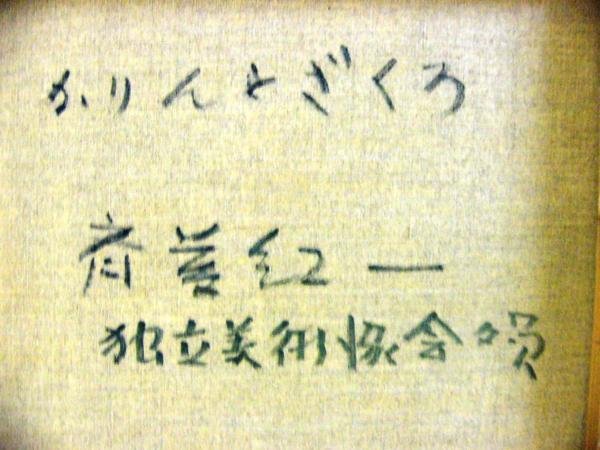 かりんとざくろ
斉藤紅一
独立美術協会々員